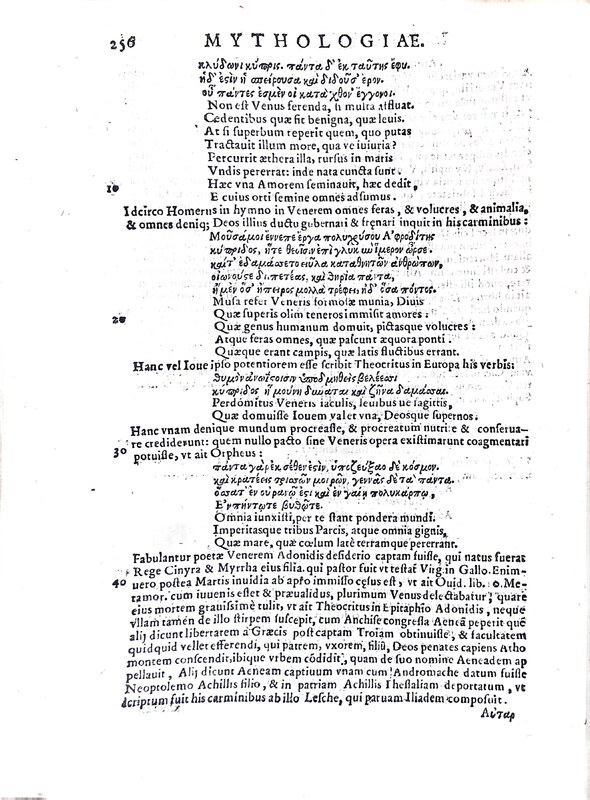 256 MYTHOLOGIAE.
κλύδωνι κύπρις. πάντα δ' ἐκ ταύτης ἔφυ.
ἥδ' ἐςὶν ἡ σπείρουσα καὶ διδοῦσ' ἔρον.
οὗ πάντες ἐσμὲν οἱ κατὰ χθόν' ἔγγονοι.
Non est Venus ferenda, si multa affluat.
Cedentibus quæ sit benigna, quæ leuis.
At si superbum reperit quem, quo putas
Tractauit illum more, qua ve iniuria?
Percurrit æthera illa, rursus in maris
Vndis pererrat: inde nata cuncta sunt.
10 Hæc vna Amorem seminauit, hæc dedit,
E cuius orti semine omnes adsumus.
Idcirco Homerus in hymno in Venerem omnes feras, & volucres, & animalia,
& omnes deniq; Deos illius ductu gubernari & frenari inquit in his carminibus:
Μοῦσά μοι ἔννεπε ἔργα πολυχρύσου Ἀφροδίτης
κύπριδος, ἥτε θεοῖσιν ἐπὶ γλυκὺν ἵμερον ὦρσε.
καί τ' ἐδαμάσσετο φῦλα καταθνητῶν ἀνθρώπων,
οἰωνούς τε διιπετέας, καὶ θηρία πάντα,
ἠμὲν ὅσ' ἤπειρος πολλὰ τρέφει, ἠδ' ὅσα πόντος.
Musa refer Veneris formosæ munia, Diuis
20 Quæ superis olim teneros immisit amores:
Quæ genus humanum domuit, pictasque volucres:
Atque feras omnes, quæ pascunt æquora ponti.
Quæque erant campis, quæ latis fluctibus errant.
Hanc vel Ioue ipso potentiorem esse scribit Theocritus in Europa his verbis:
κύπριδος ἣ μούνη δύναται καὶ ζῆνα δαμάσσαι.
Perdomitus Veneris iaculis, leuibus ue sagittis,
Quæ domuisse Iouem valet vna, Deosque supernos.
Hanc vnam denique mundum procreasse, & procreatum nutrire & conserua-
re crediderunt: quem nullo pacto sine Veneris opera existimarunt coagmentari
30 potuisse, vt ait Orpheus:
πάντα γὰρ ἐκ σέθεν ἐςὶν, ὑπεζεύξαο δὲ κόσμον.
καὶ κρατέεις τρισσῶν μοιρῶν, γεννᾷς δὲ τὰ πάντα.
ὅσσατ' ἐν οὐρανῷ ἐςὶ καὶ ἐν γαίῃ πολυκάρπῳ,
Ἐν πόντῳτε βυθῷτε.
Omnia iunxisti, per te stant pondera mundi.
Imperitasque tribus Parcis, atque omnia gignis,
Quæ mare, quæ cœlum latè terramque pererrant.
Fabulantur poetæ Venerem Adonidis desiderio captam fuisse, qui natus fuerat
è Rege Cinyra & Myrrha eius filia. qui pastor fuit vt testat Virg. in Gallo. Enim-
40 uero postea Martis inuidia ab apro immisso cęsus est, vt ait Ouid. lib. 10. Me-
tamor. cum iuuenis esset & præualidus, plurimum Venus delectabatur, quare
eius mortem grauissimè tulit, vt ait Theocritus in Epitaphio Adonidis, neque
vllam tamen de illo stirpem suscepit, cum Anchise congressa Aeneã peperit quẽ
alij dicunt libertatem à Græcis post captam Troiam obtinuisse, & facultatem
quidquid vellet efferendi, qui patrem, vxorem, filiũ, Deos penates capiens Atho
montem conscendit, ibique vrbem cõdidit, quam de suo nomine Aeneadem ap
pellauit, Alij dicunt Aeneam captiuum vnam cum Andromache datum fuisse
Neoptolemo Achillis filio, & in patriam Achillis Thessaliam deportatum, vt
scriptum fuit his carminibus ab illo Lesche, qui paruam Iliadem composuit.
Αὐταρ